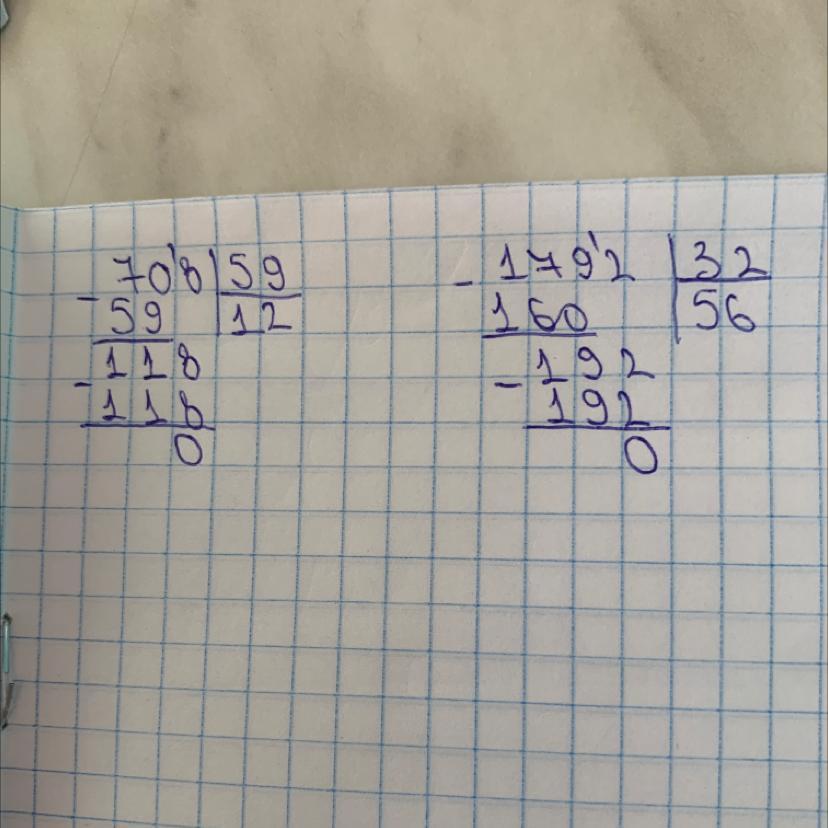 - 70'8 | 59
59 | 12
- 118
118
0
- 179'2 | 32
160 | 56
- 192
192
0